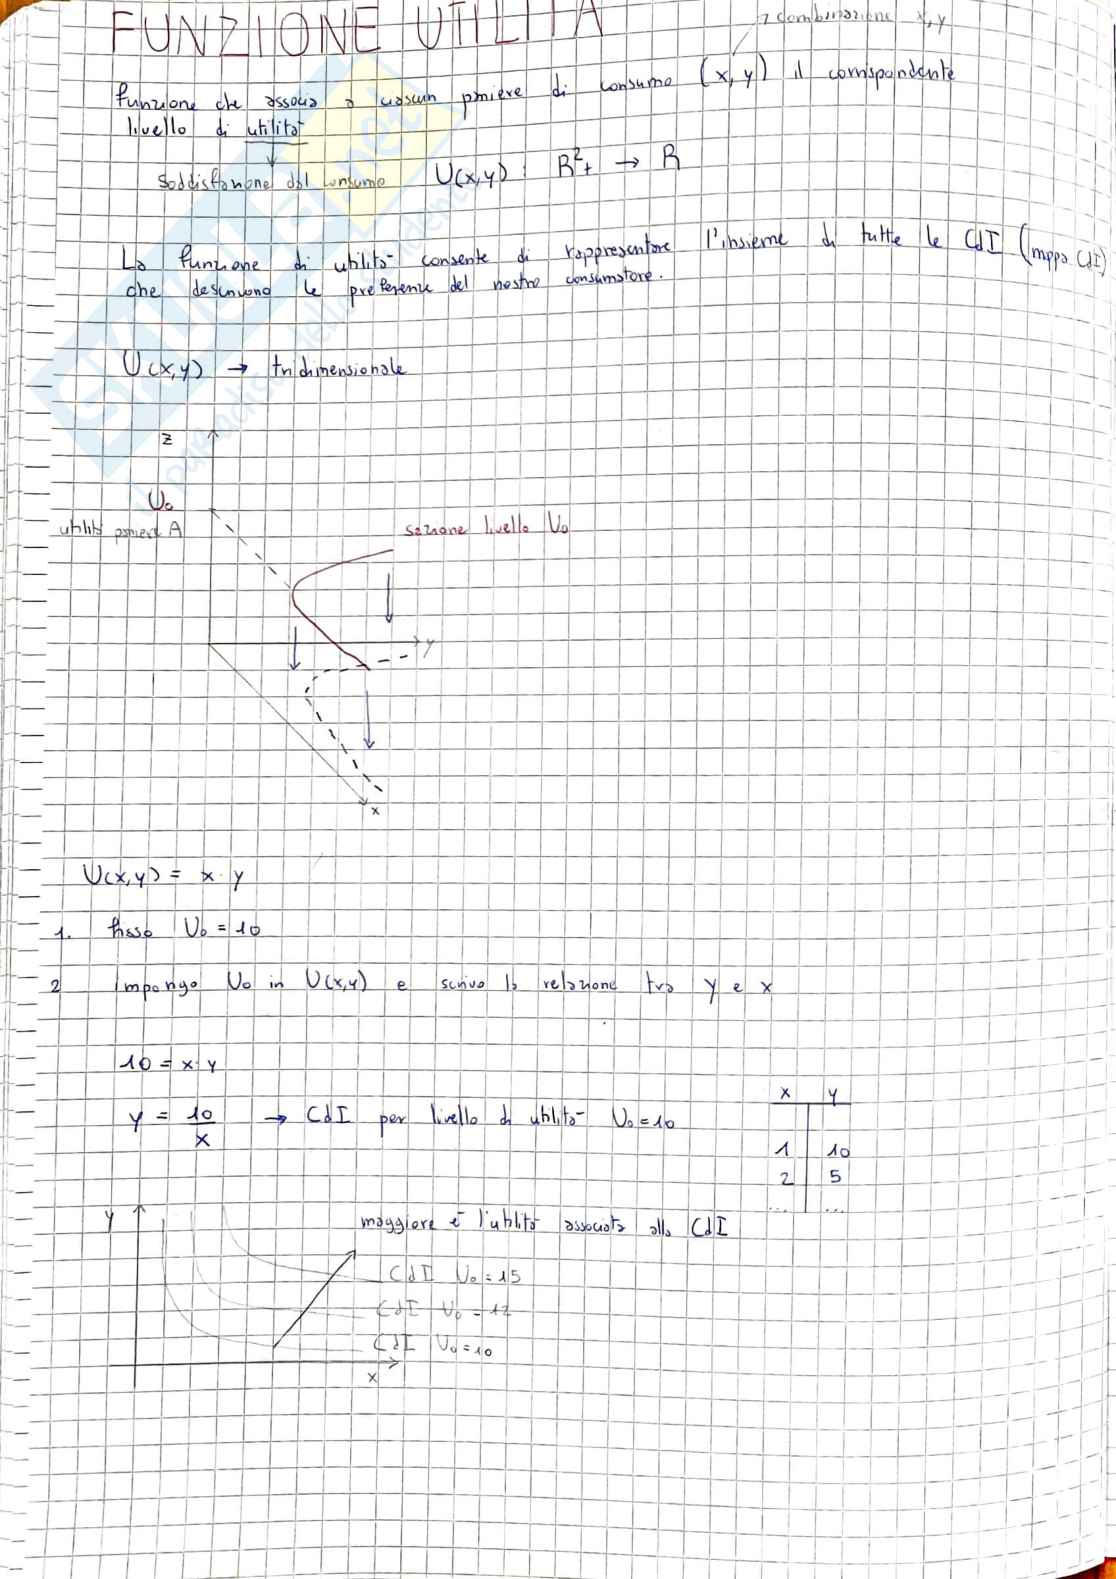 FUNZIONE UTILITÀ
combinazione x, y
funzione che associa a ciascun paniere di consumo (x, y) il corrispondente
livello di utilità
soddisfazione dal consumo U(x,y) : R²₊ → R
La funzione di utilità consente di rappresentare l'insieme di tutte le CdI (mappa CdI)
che descrivono le preferenze del nostro consumatore.
U(x,y) → tridimensionale
z
U₀
utilità paniere A
sezione livello U₀
y
x
U(x,y) = x · y
1. fisso U₀ = 10
2 Impongo U₀ in U(x,y) e scrivo la relazione tra y e x
10 = x · y
y = 10/x → CdI per livello di utilità U₀ = 10
x y
1 10
2 5
... ...
y
maggiore è l'utilità associata alla CdI
CdI U₀ = 15
CdI U₀ = 12
CdI U₀ = 10
x
SKUOLA.net
il paradiso dello studente